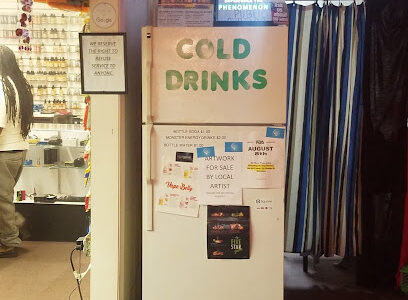 Google
WE RESERVE
THE RIGHT TO
REFUSE
SERVICE TO
ANYONE.
PHENOMENON
COLD
DRINKS
BOTTLE SODA $1.00
MONSTER ENERGY DRINKS $2.00
BOTTLE WATER $1.00
ARTWORK
FOR SALE
BY LOCAL
ARTIST
AUGUST
Vape Belly
FIVE
STAR